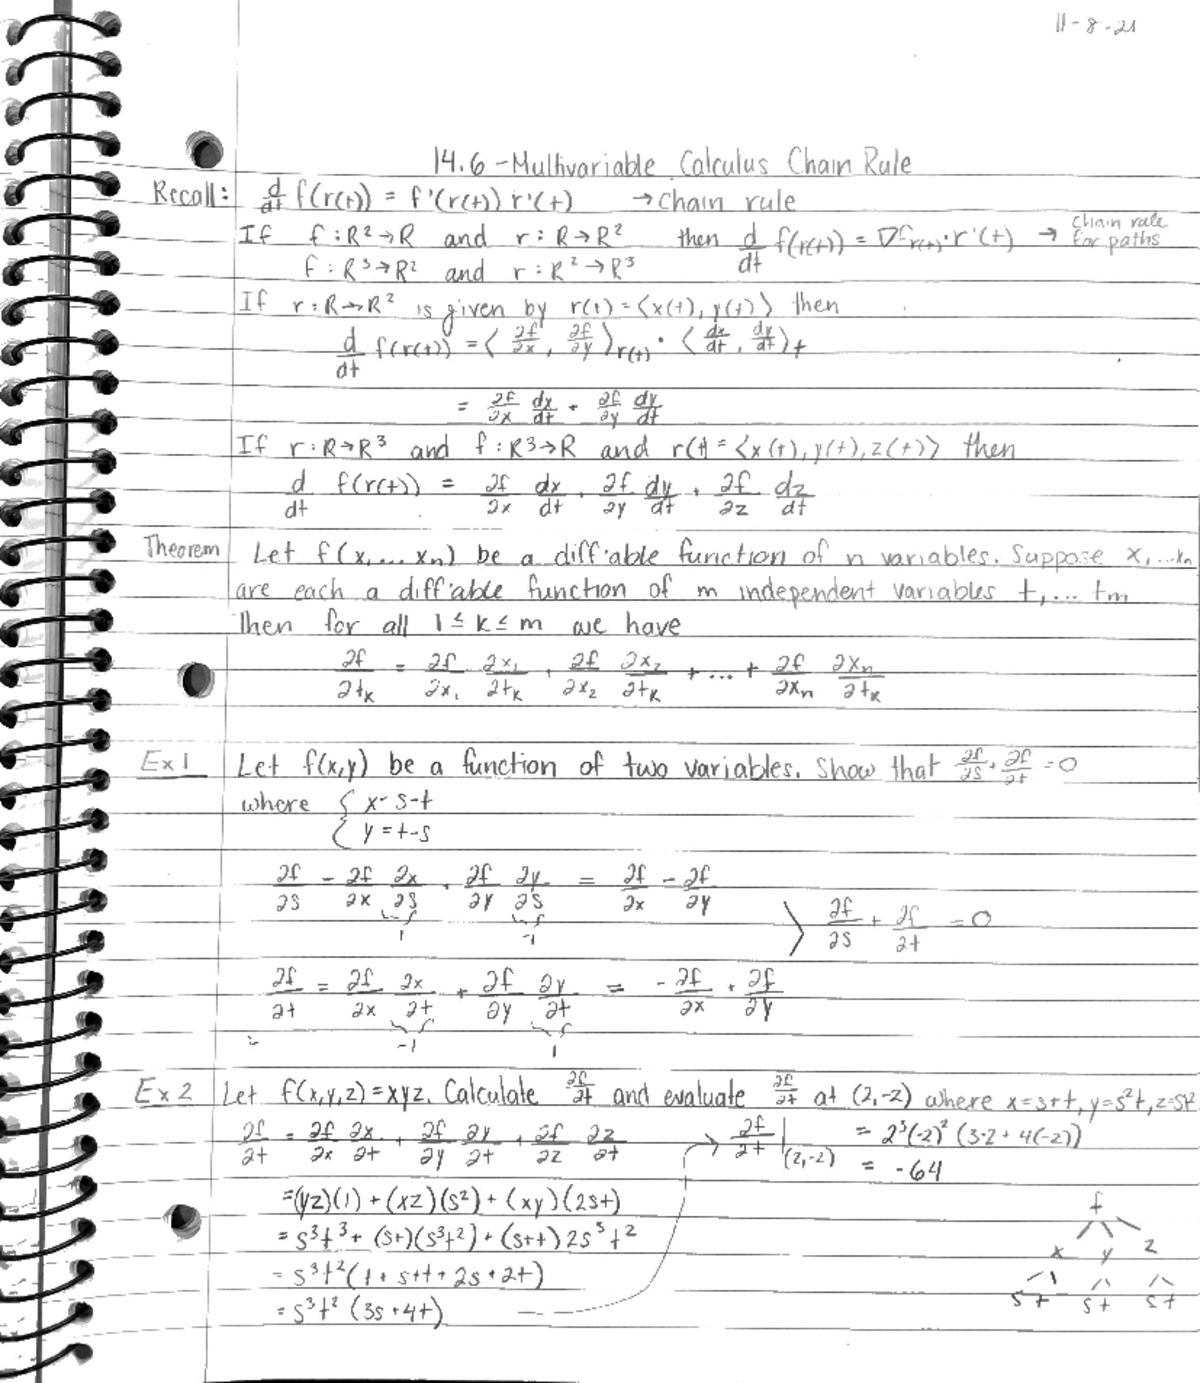 11-8-21
14.6 - Multivariable Calculus Chain Rule
Recall: d/dt f(r(t)) = f'(r(t)) r'(t) → Chain rule
If f : R² → R and r : R → R² then d/dt f(r(t)) = ∇f_r(t) · r'(t) → Chain rule for paths
f : R³ → R² and r : R² → R³
If r : R → R² is given by r(t) = ⟨x(t), y(t)⟩ then
d/dt f(r(t)) = ⟨∂f/∂x, ∂f/∂y⟩_r(t) · ⟨dx/dt, dy/dt⟩_t
= ∂f/∂x dx/dt + ∂f/∂y dy/dt
If r : R → R³ and f : R³ → R and r(t) = ⟨x(t), y(t), z(t)⟩ then
d/dt f(r(t)) = ∂f/∂x dx/dt + ∂f/∂y dy/dt + ∂f/∂z dz/dt
Theorem Let f(x₁... xₙ) be a diff'able function of n variables. Suppose x₁...xₙ
are each a diff'able function of m independent variables t₁... tm
Then for all 1 ≤ k ≤ m we have
∂f/∂tₖ = ∂f/∂x₁ ∂x₁/∂tₖ + ∂f/∂x₂ ∂x₂/∂tₖ + ... + ∂f/∂xₙ ∂xₙ/∂tₖ
Ex 1 Let f(x,y) be a function of two variables. Show that ∂f/∂s + ∂f/∂t = 0
where { x = s-t
{ y = t-s
∂f/∂s = ∂f/∂x ∂x/∂s + ∂f/∂y ∂y/∂s = ∂f/∂x - ∂f/∂y
1 -1
⟩ ∂f/∂s + ∂f/∂t = 0
∂f/∂t = ∂f/∂x ∂x/∂t + ∂f/∂y ∂y/∂t = -∂f/∂x + ∂f/∂y
-1 1
Ex 2 Let f(x,y,z) = xyz. Calculate ∂f/∂t and evaluate ∂f/∂t at (2,-2) where x=s+t, y=s²t, z=st²
∂f/∂t = ∂f/∂x ∂x/∂t + ∂f/∂y ∂y/∂t + ∂f/∂z ∂z/∂t → ∂f/∂t |(2,-2) = 2³(-2)² (3·2 + 4(-2))
= -64
= (yz)(1) + (xz)(s²) + (xy)(2st)
= s³t³ + (s+t)(s³t²) + (s+t) 2s³t²
= s³t² (1 + s+t + 2s + 2t)
= s³t² (3s + 4t)
f
x y z
s t s t s t